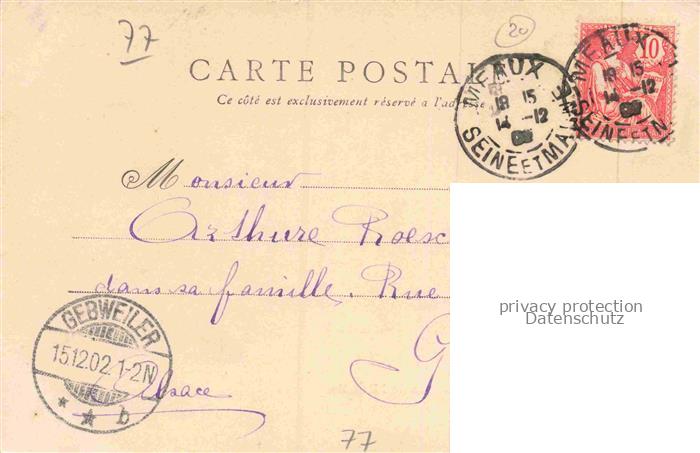 77
20
CARTE POSTAL
Ce côté est exclusivement réservé a l'adresse
MEAUX
18 15
14 -12
SEINE ET MA
10
MEAUX
18 15
14 -12
SEINE ET M
Monsieur
Arthure Roesc
dans sa famille. Rue
G
Alsace
GEBWEILER
15.12.02.1-2N
b
77
privacy protection
Datenschutz